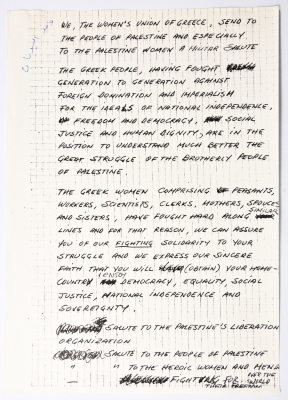 WE, THE WOMEN'S UNION OF GREECE, SEND TO
THE PEOPLE OF PALESTINE AND ESPECIALLY
TO THE PALESTINE WOMEN A MILITAR SALUTE
THE GREEK PEOPLE, HAVING FOUGHT
GENERATION TO GENERATION AGAINST
FOREIGN DOMINATION AND IMPERIALISM
FOR THE IDEALS OF NATIONAL INDEPENDENCE,
FREEDOM AND DEMOCRACY, SOCIAL
JUSTICE AND HUMAN DIGNITY, ARE IN THE
POSITION TO UNDERSTAND MUCH BETTER THE
GREAT STRUGGLE OF THE BROTHERLY PEOPLE
OF PALESTINE.
THE GREEK WOMEN COMPRISING PEASANTS,
WORKERS, SCIENTISTS, CLERKS, MOTHERS, SPOUCES
AND SISTERS, HAVE FOUGHT HARD ALONG SIMILAR
LINES AND FOR THAT REASON, WE CAN ASSURE
YOU OF OUR FIGHTING SOLIDARITY TO YOUR
STRUGGLE AND WE EXPRESS OUR SINCERE
FAITH THAT YOU WILL (OBTAIN) YOUR HOME-
COUNTRY ENJOY DEMOCRACY, EQUALITY, SOCIAL
JUSTICE, NATIONAL INDEPENDENCE AND
SOVEREIGNTY.
SALUTE TO THE PALESTINE'S LIBERATION
ORGANIZATION
SALUTE TO THE PEOPLE OF PALESTINE
" " TO THE HEROIC WOMEN AND MEN
FIGHTING FOR THEIR FREEDOM
WORLD